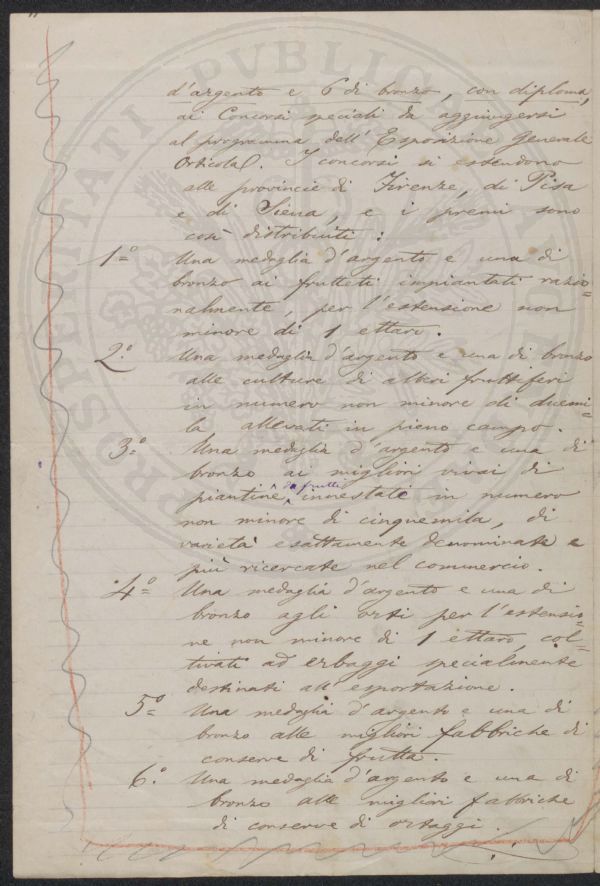 d'argento e 6 di bronzo, con diploma,
ai Concorsi speciali da aggiungersi
al programma dell'Esposizione Generale
Orticola. I concorsi si estendono
alle provincie di Firenze, di Pisa
e di Siena, e i premi sono
così distribuiti:
1º Una medaglia d'argento e una di
bronzo ai frutteti impiantati razio=
nalmente, per l'estensione non
minore di 1 ettaro.
2º. Una medaglia d'argento e una di bronzo
alle culture di alberi fruttiferi
in numero non minore di duemi-
la allevati in pieno campo.
3º. Una medaglia d'argento e una di
bronzo ai migliori vivai di
piantine da frutti innestate in numero
non minore di cinquemila, di
varietà esattamente denominate e
più ricercate nel commercio.
4º Una medaglia d'argento e una di
bronzo agli orti per l'estensio=
ne non minore di 1 ettaro, col=
tivati ad erbaggi specialmente
destinati all'esportazione.
5º Una medaglia d'argento e una di
bronzo alle migliori fabbriche di
conserve di frutta.
6º. Una medaglia d'argento e una di
bronzo alle migliori fabbriche
di conserve di ortaggi.
PROSPERITATI PUBLICAE AUGENDAE